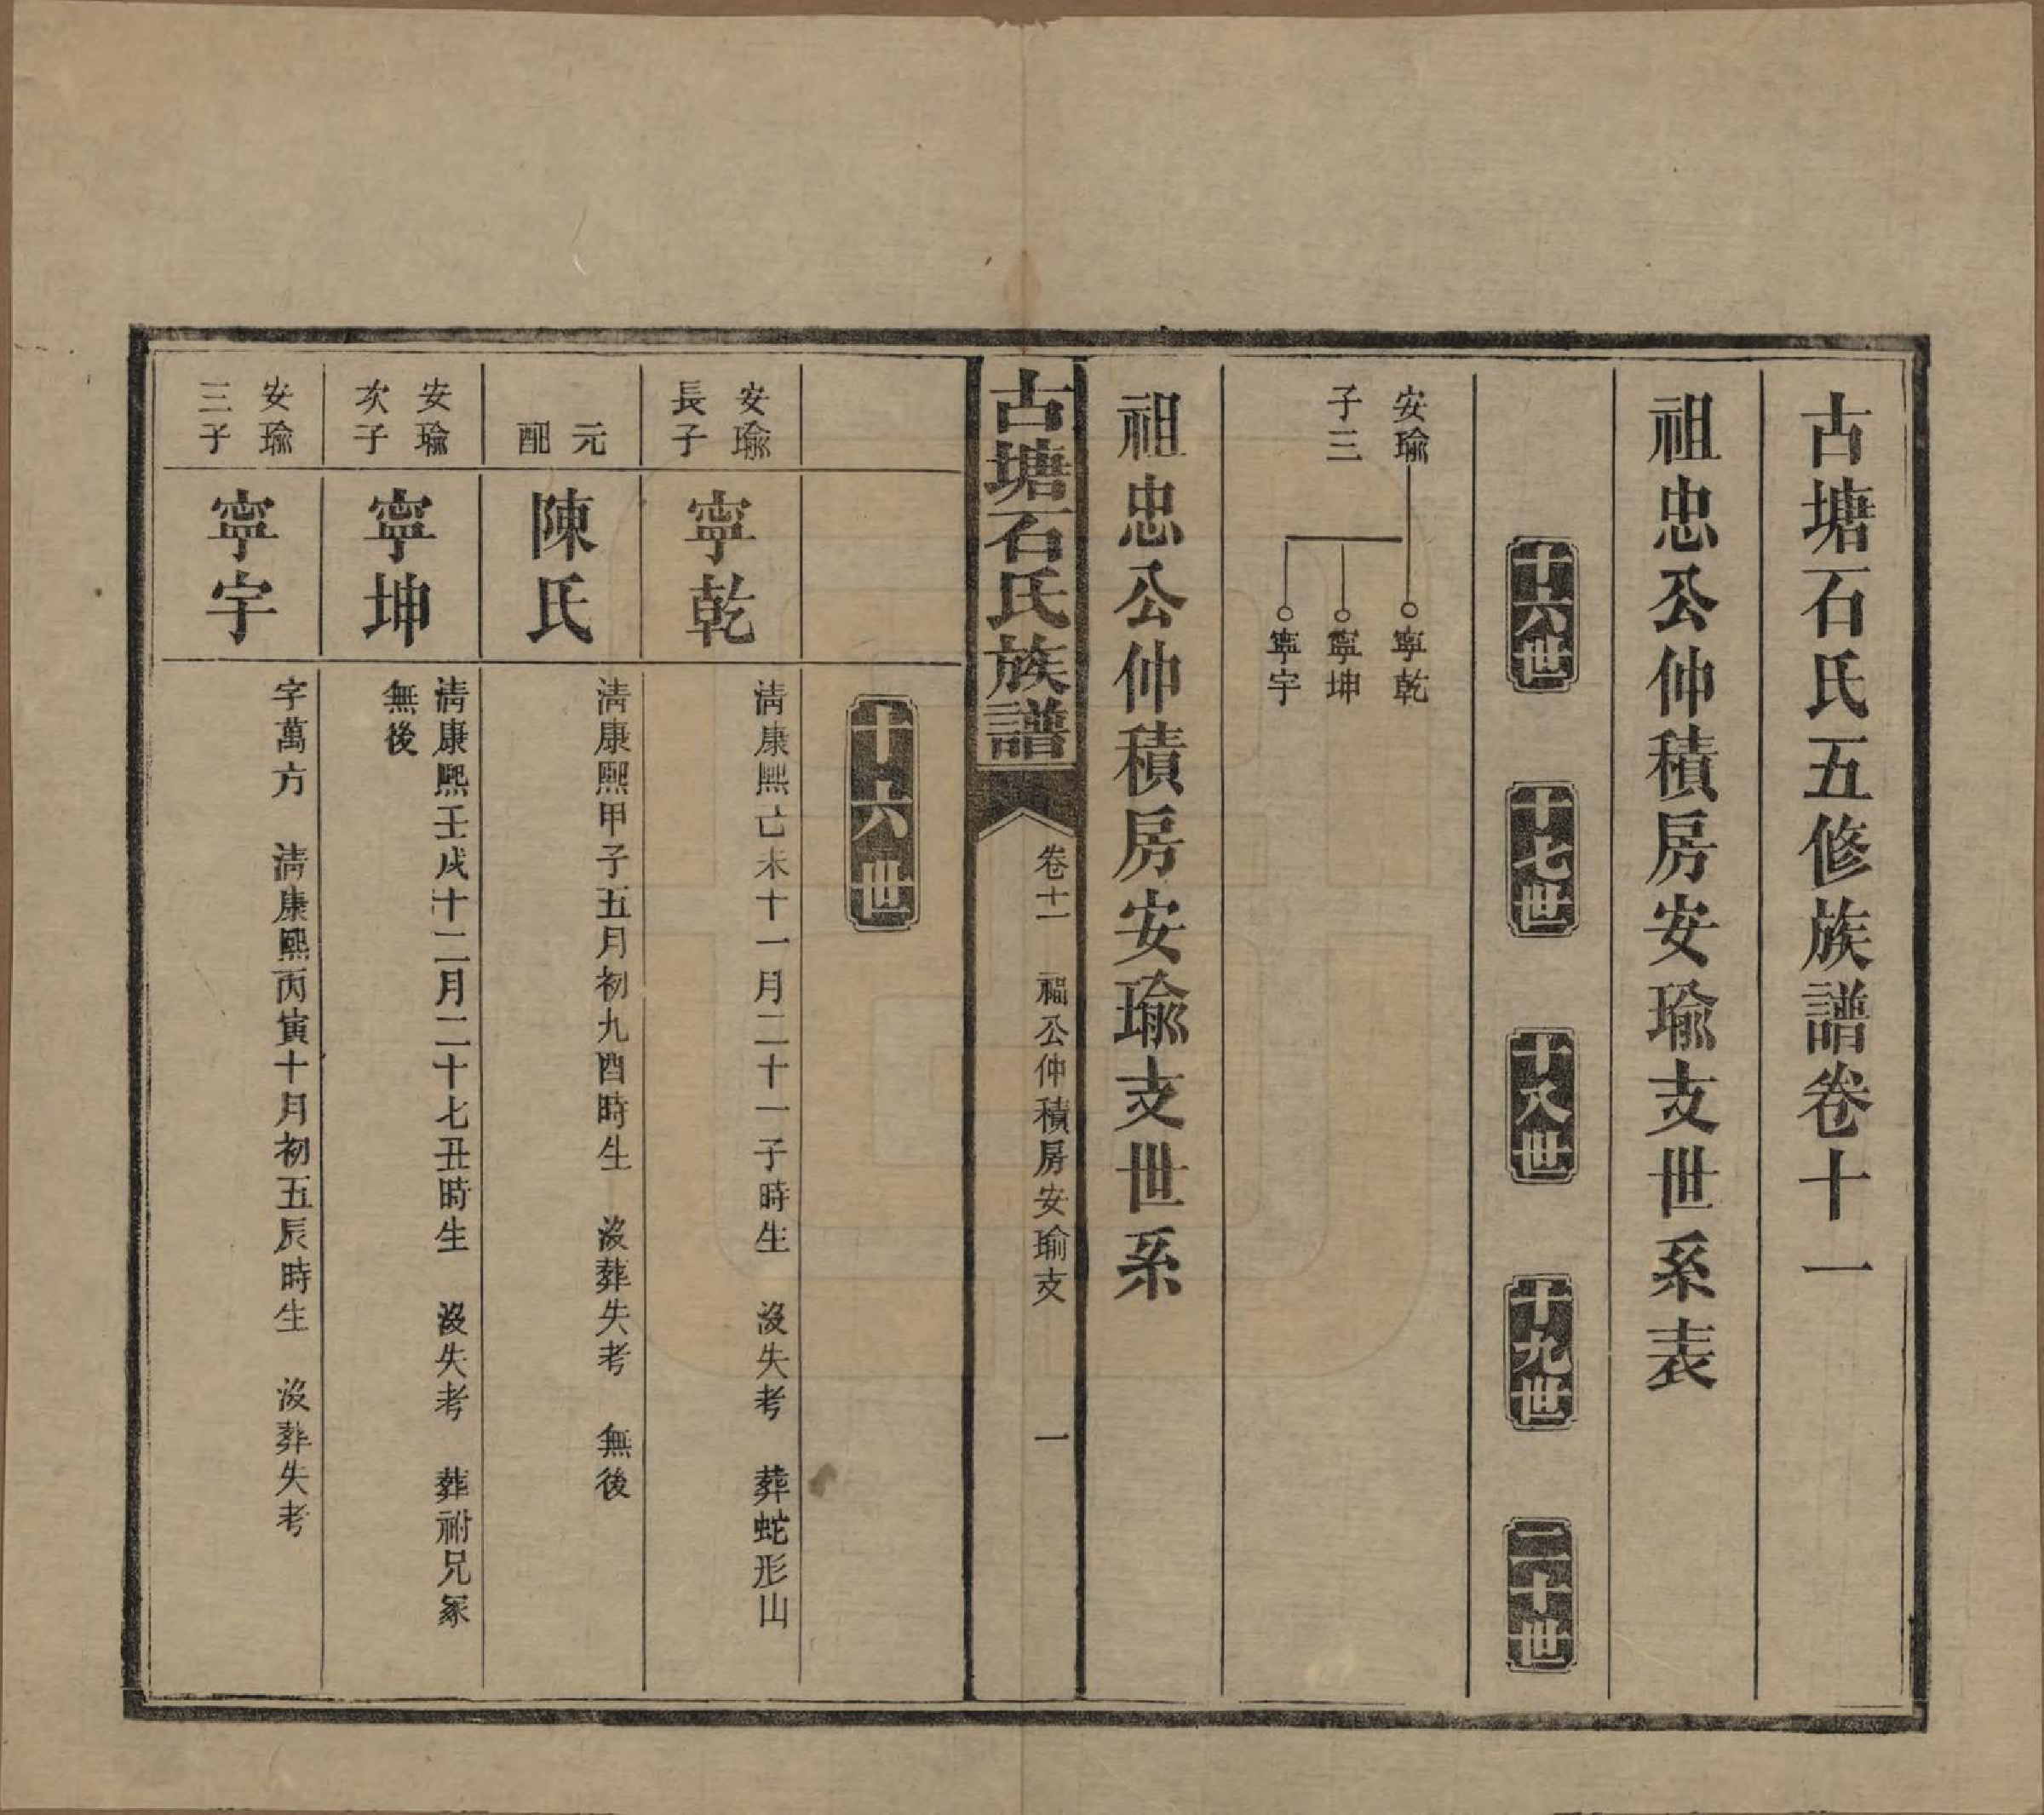 古塘石氏五修族譜卷十一
祖忠公仲積房安瑜支世系表
十六世
十七世
十八世
十九世
二十世
安瑜
子三
寧乾
寧坤
寧宇
祖忠公仲積房安瑜支世系
古塘石氏族譜
卷十一
福公仲積房安瑜支
一
十六世
安瑜
長子
寧乾
淸康熙己未十一月二十一子時生 沒失考 葬蛇形山
元
配
陳氏
淸康熙甲子五月初九酉時生 沒葬失考 無後
安瑜
次子
寧坤
淸康熙壬戌十二月二十七丑時生 沒失考 葬祔兄冢
無後
安瑜
三子
寧宇
字萬方 淸康熙丙寅十月初五辰時生 沒葬失考